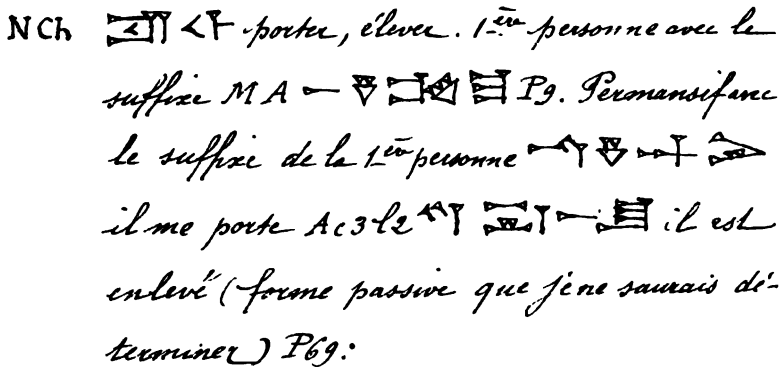 NCh porter, élever. 1ère personne avec le
suffixe MA P9. Permansif avec
le suffixe de la 1ère personne
il me porte Ac3l2 il est
enlevé (forme passive que je ne saurais dé-
terminer) P69: